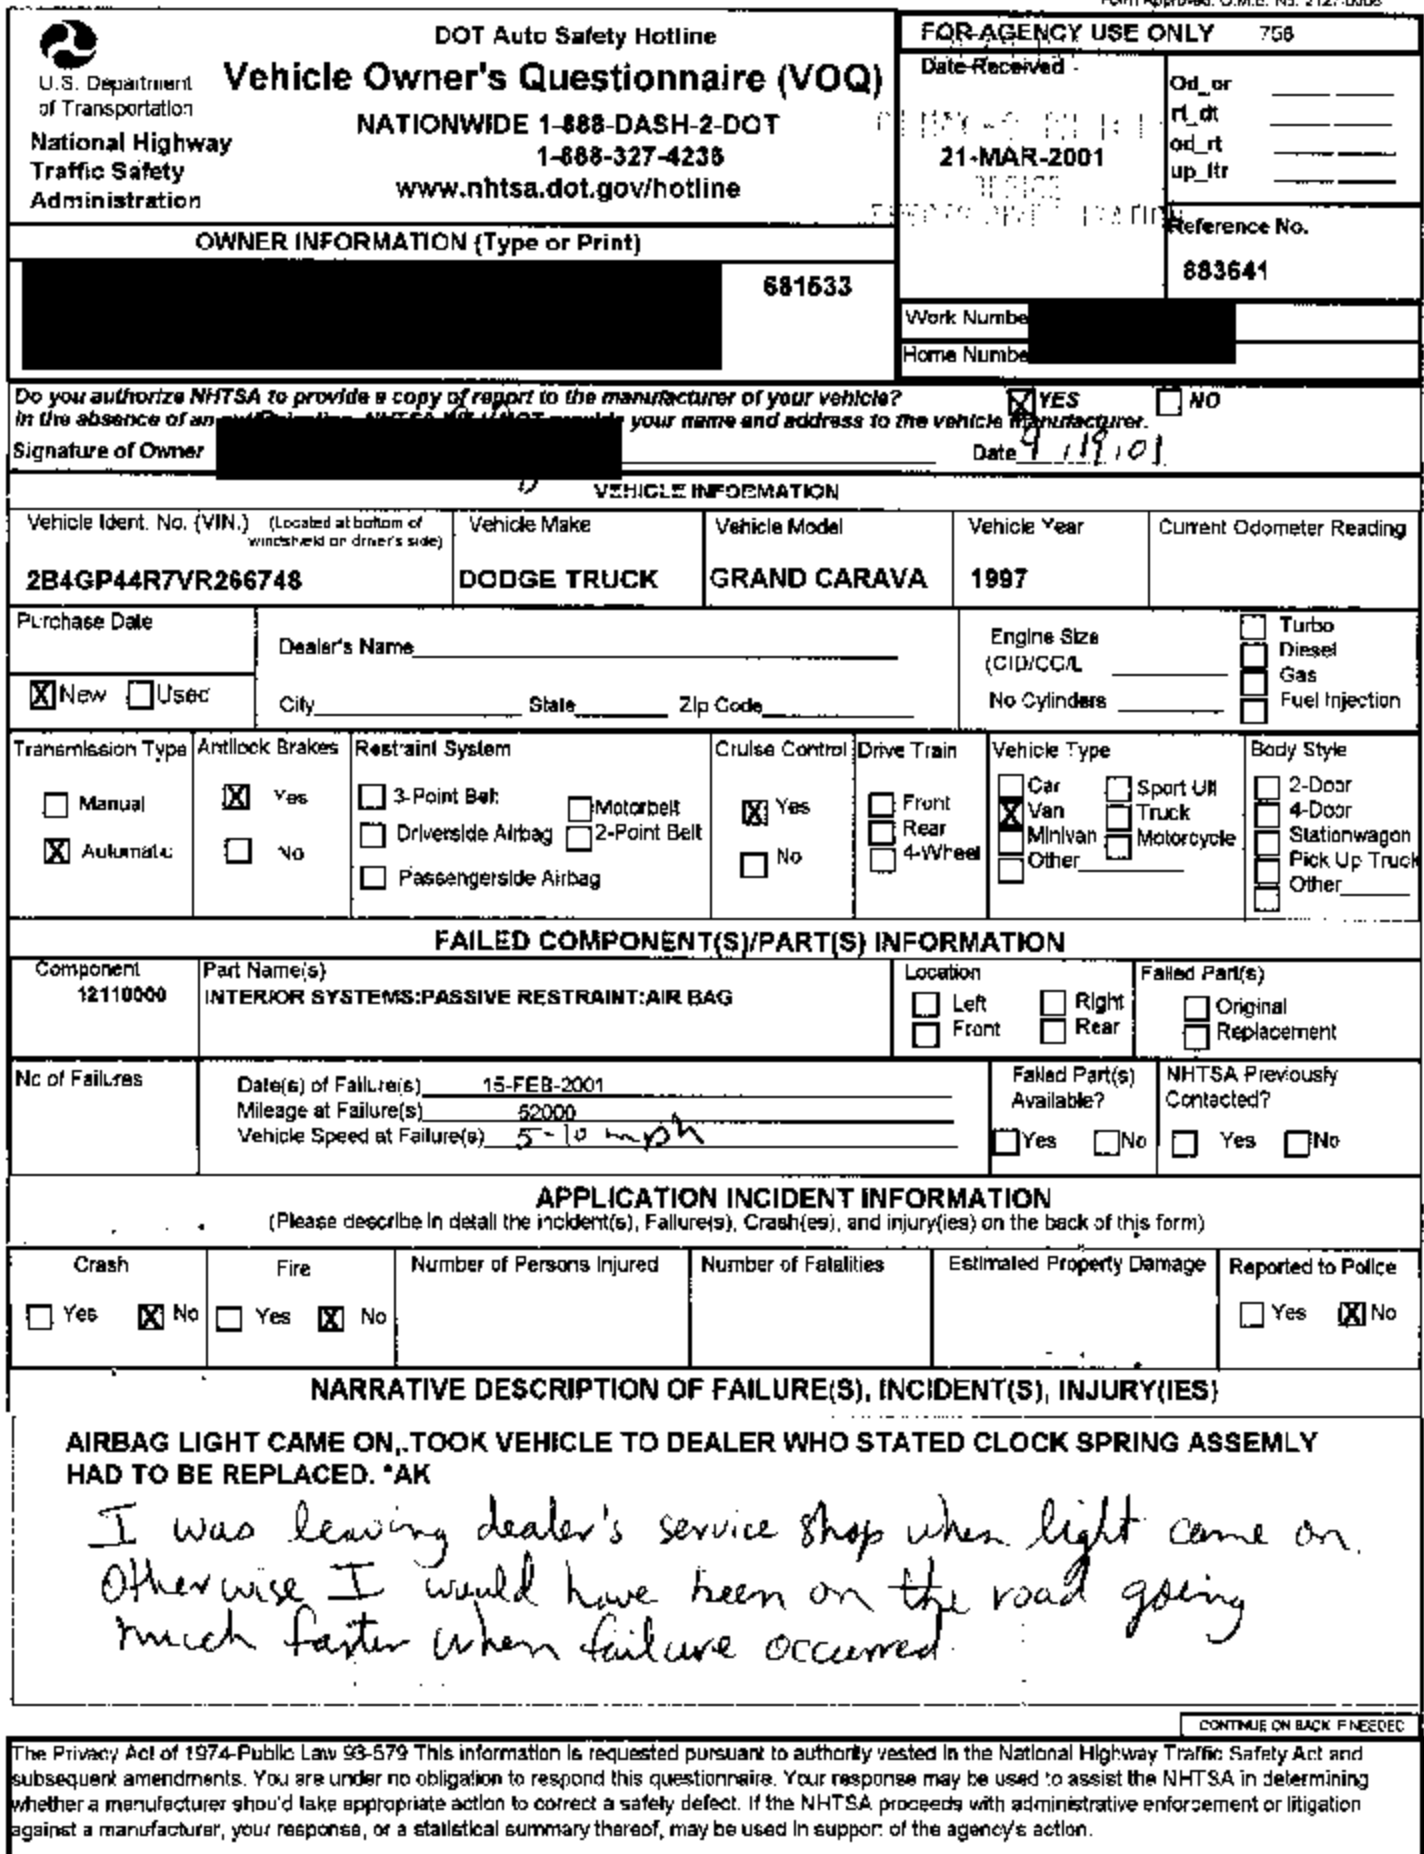 Form Approved: O.M.B. No. 2127-0008
U.S. Department
of Transportation
National Highway
Traffic Safety
Administration
DOT Auto Safety Hotline
Vehicle Owner's Questionnaire (VOQ)
NATIONWIDE 1-888-DASH-2-DOT
1-888-327-4236
www.nhtsa.dot.gov/hotline
FOR AGENCY USE ONLY 756
Date Received
21-MAR-2001
Od_or
rt_dt
od_rt
up_ltr
Reference No.
883641
OWNER INFORMATION (Type or Print)
681533
Work Numbe
Home Numbe
Do you authorize NHTSA to provide a copy of report to the manufacturer of your vehicle? YES NO
In the absence of an your name and address to the vehicle manufacturer.
Signature of Owner Date 9/19/01
VEHICLE INFORMATION
Vehicle Ident. No. (VIN.) (Located at bottom of windshield on driver's side)
2B4GP44R7VR266748
Vehicle Make
DODGE TRUCK
Vehicle Model
GRAND CARAVA
Vehicle Year
1997
Current Odometer Reading
Purchase Date
X New Used
Dealer's Name
City State Zip Code
Engine Size
(CID/CC/L
No Cylinders
Turbo
Diesel
Gas
Fuel Injection
Transmission Type
Manual
X Automatic
Antilock Brakes
X Yes
No
Restraint System
3-Point Belt
Motorbelt
Driverside Airbag
2-Point Belt
Passengerside Airbag
Cruise Control
X Yes
No
Drive Train
Front
Rear
4-Wheel
Vehicle Type
Car
X Van
Minivan
Other
Sport Utl
Truck
Motorcycle
Body Style
2-Door
4-Door
Stationwagon
Pick Up Truck
Other
FAILED COMPONENT(S)/PART(S) INFORMATION
Component
12110000
Part Name(s)
INTERIOR SYSTEMS:PASSIVE RESTRAINT:AIR BAG
Location
Left Right
Front Rear
Failed Part(s)
Original
Replacement
No of Failures
Date(s) of Failure(s) 15-FEB-2001
Mileage at Failure(s) 52000
Vehicle Speed at Failure(s) 5-10 mph
Failed Part(s)
Available?
Yes No
NHTSA Previously
Contacted?
Yes No
APPLICATION INCIDENT INFORMATION
(Please describe in detail the incident(s), Failure(s), Crash(es), and injury(ies) on the back of this form)
Crash
Yes X No
Fire
Yes X No
Number of Persons Injured
Number of Fatalities
Estimated Property Damage
Reported to Police
Yes X No
NARRATIVE DESCRIPTION OF FAILURE(S), INCIDENT(S), INJURY(IES)
AIRBAG LIGHT CAME ON,.TOOK VEHICLE TO DEALER WHO STATED CLOCK SPRING ASSEMLY
HAD TO BE REPLACED. *AK
I was leaving dealer's service shop when light came on.
Otherwise I would have been on the road going
much faster when failure occurred.
CONTINUE ON BACK IF NEEDED
The Privacy Act of 1974-Public Law 93-579 This information is requested pursuant to authority vested in the National Highway Traffic Safety Act and
subsequent amendments. You are under no obligation to respond this questionnaire. Your response may be used to assist the NHTSA in determining
whether a manufacturer should take appropriate action to correct a safety defect. If the NHTSA proceeds with administrative enforcement or litigation
against a manufacturer, your response, or a statistical summary thereof, may be used in support of the agency's action.